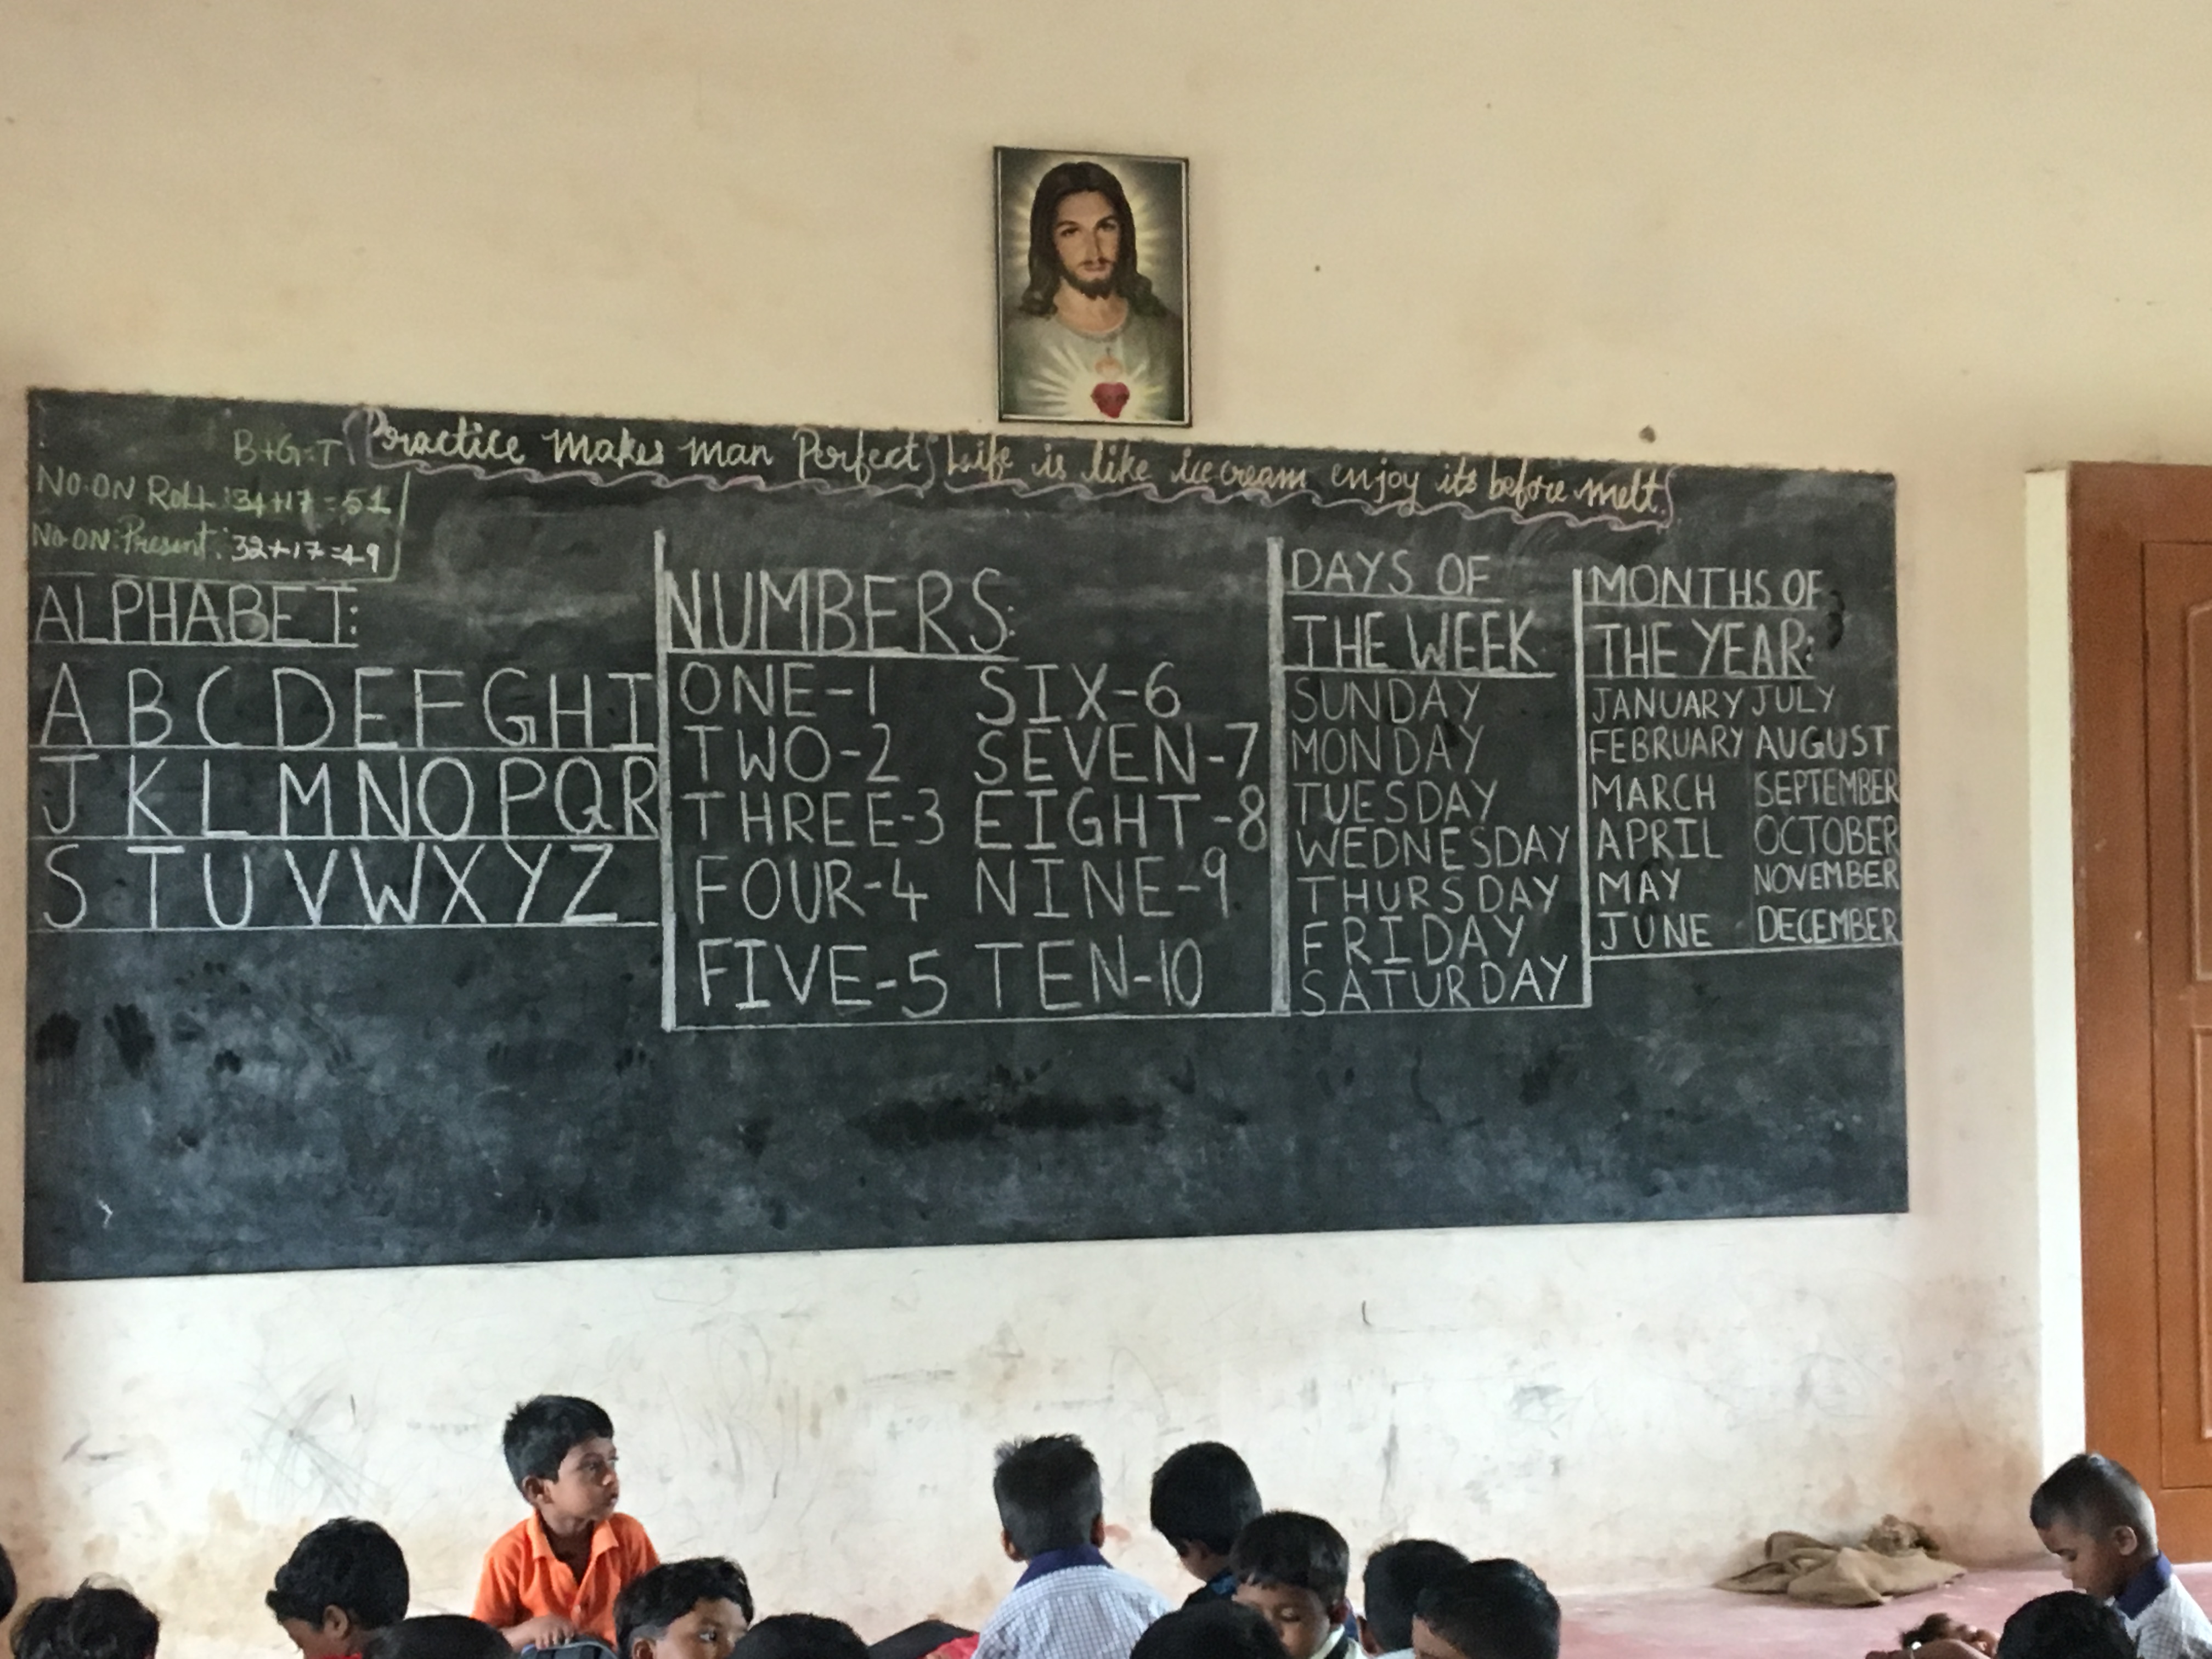 B+G=T
NO.ON ROLL: 34+17=51
NO.ON:Present: 32+17=49
Practice makes man Perfect
Life is like ice cream enjoy its before melt.
ALPHABET:
A B C D E F G H I
J K L M N O P Q R
S T U V W X Y Z
NUMBERS:
ONE-1 SIX-6
TWO-2 SEVEN-7
THREE-3 EIGHT-8
FOUR-4 NINE-9
FIVE-5 TEN-10
DAYS OF
THE WEEK
SUNDAY
MONDAY
TUESDAY
WEDNESDAY
THURSDAY
FRIDAY
SATURDAY
MONTHS OF
THE YEAR:
JANUARY JULY
FEBRUARY AUGUST
MARCH SEPTEMBER
APRIL OCTOBER
MAY NOVEMBER
JUNE DECEMBER